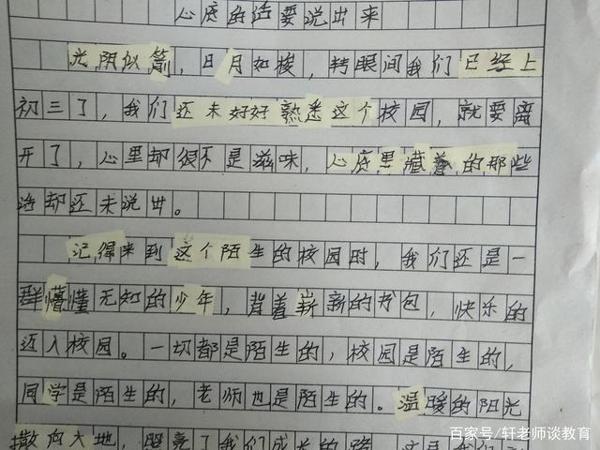 心底的话要说出来
光阴似箭，日月如梭，转眼间我们已经上
初三了，我们还未好好熟悉这个校园，就要离
开了，心里却很不是滋味，心底里藏着的那些
话却还未说出。
记得来到这个陌生的校园时，我们还是一
群懵懂无知的少年，背着崭新的书包，快乐的
迈入校园。一切都是陌生的，校园是陌生的，
同学是陌生的，老师也是陌生的。温暖的阳光
撒向大地，照亮了我们成长的路，这是我们
百家号/轩老师谈教育